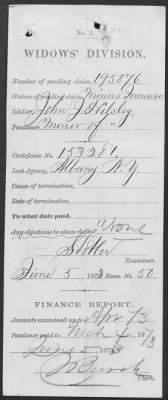 No. 2.
WIDOWS' DIVISION.
Number of pending claim, 195,876
Nature of pending claim, Minors Increase
Soldier, John J.
Pensioner, Minor of "
Certificate No. 153,281
Last Agency, Albany N.Y.
Cause of termination,
Date of termination,
To what date paid,
Any objections to above claim? None
Examiner.
June 5, 1873 Room No. 50.
FINANCE REPORT.
Accounts examined up to Apr /73
Pensioner paid to Mch 4, 1873
June 5 1873
Clerk.